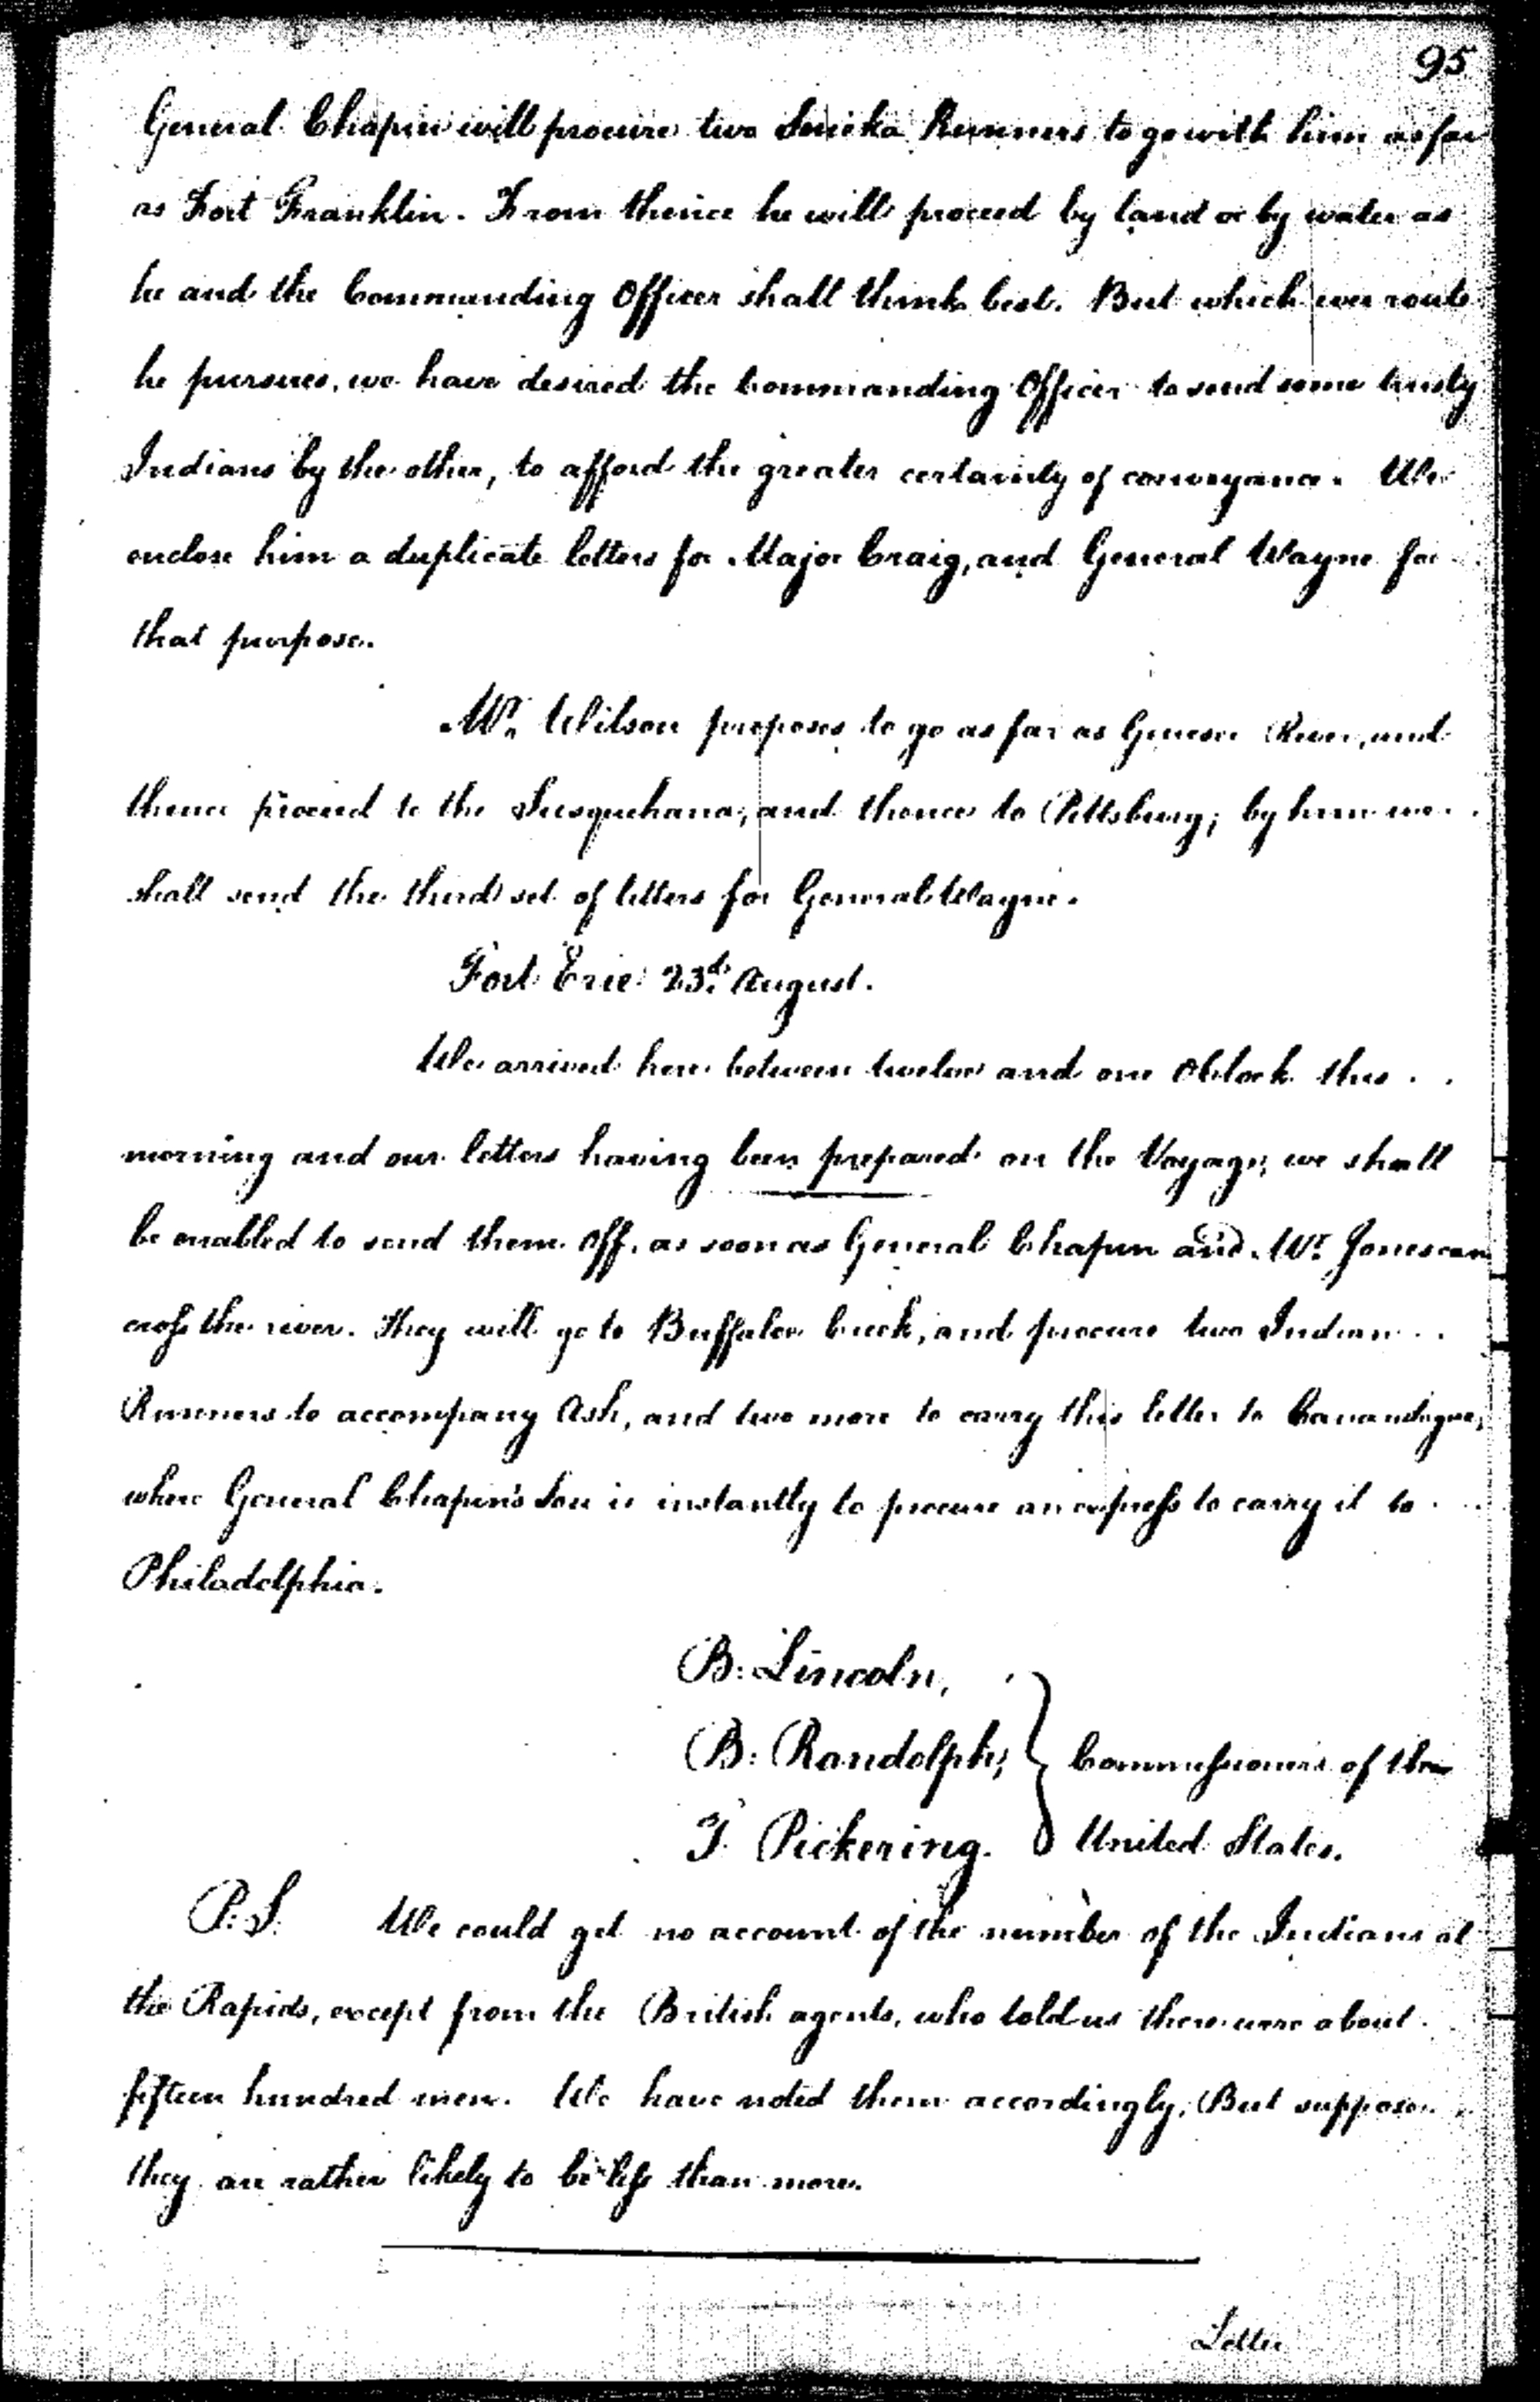 95
General Chapin will procure two Seneka Runners to go with him as far
as Fort Franklin. From thence he will proceed by land or by water as
he and the Commanding Officer shall think best. But which ever route
he pursues, we have desired the Commanding Officer to send some trusty
Indians by the other, to afford the greater certainty of conveyance. We
enclose him a duplicate letters for Major Craig, and General Wayne for
that purpose.
Mr. Wilson proposes to go as far as Genesee River, and
thence proceed to the Susquehana, and thence to Pittsburg; by him we
shall send the third set of letters for General Wayne.
Fort Erie 23d. August.
We arrived here between twelve and one OClock this
morning and our letters having been prepared on the Voyage, we shall
be enabled to send them off, as soon as General Chapin and Mr. Jones can
cross the river. They will go to Buffaloe Creek, and procure two Indian
Runners to accompany Ash, and two more to carry this letter to Canandogue,
where General Chapin's Son is instantly to procure an express to carry it to
Philadelphia.
B: Lincoln,
B: Randolph, } Commissioners of the
T. Pickering. United States.
P.S. We could get no account of the number of the Indians at
the Rapids, except from the British agents, who told us there were about
fifteen hundred men. We have noted them accordingly, But suppose
they are rather likely to be less than more.
Letter